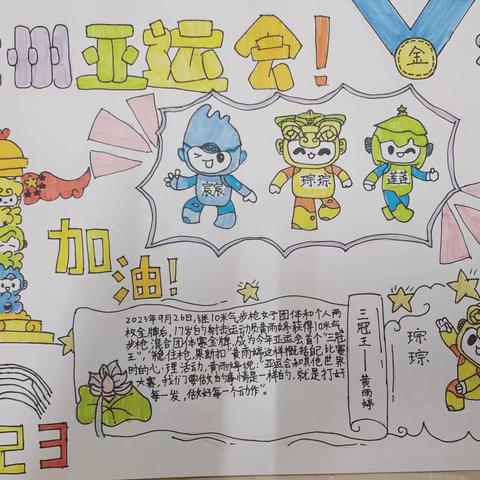 州亚运会!
金
宸宸
琮琮
莲莲
加油!
2023年9月26日,继10米气步枪女子团体和个人两
枚金牌后,17岁的射击运动员黄雨婷获得10米气
步枪混合团体赛金牌,成为今年亚运会首个"三冠
王","稳住枪,果断扣"黄雨婷这样概括配比赛
时的心理活动,黄雨婷说:"亚运会和其他世界
大赛,我们要做的事情是一样的,就是打好
每一发,做好每一个动作"。
三冠王——黄雨婷
琮琮
23